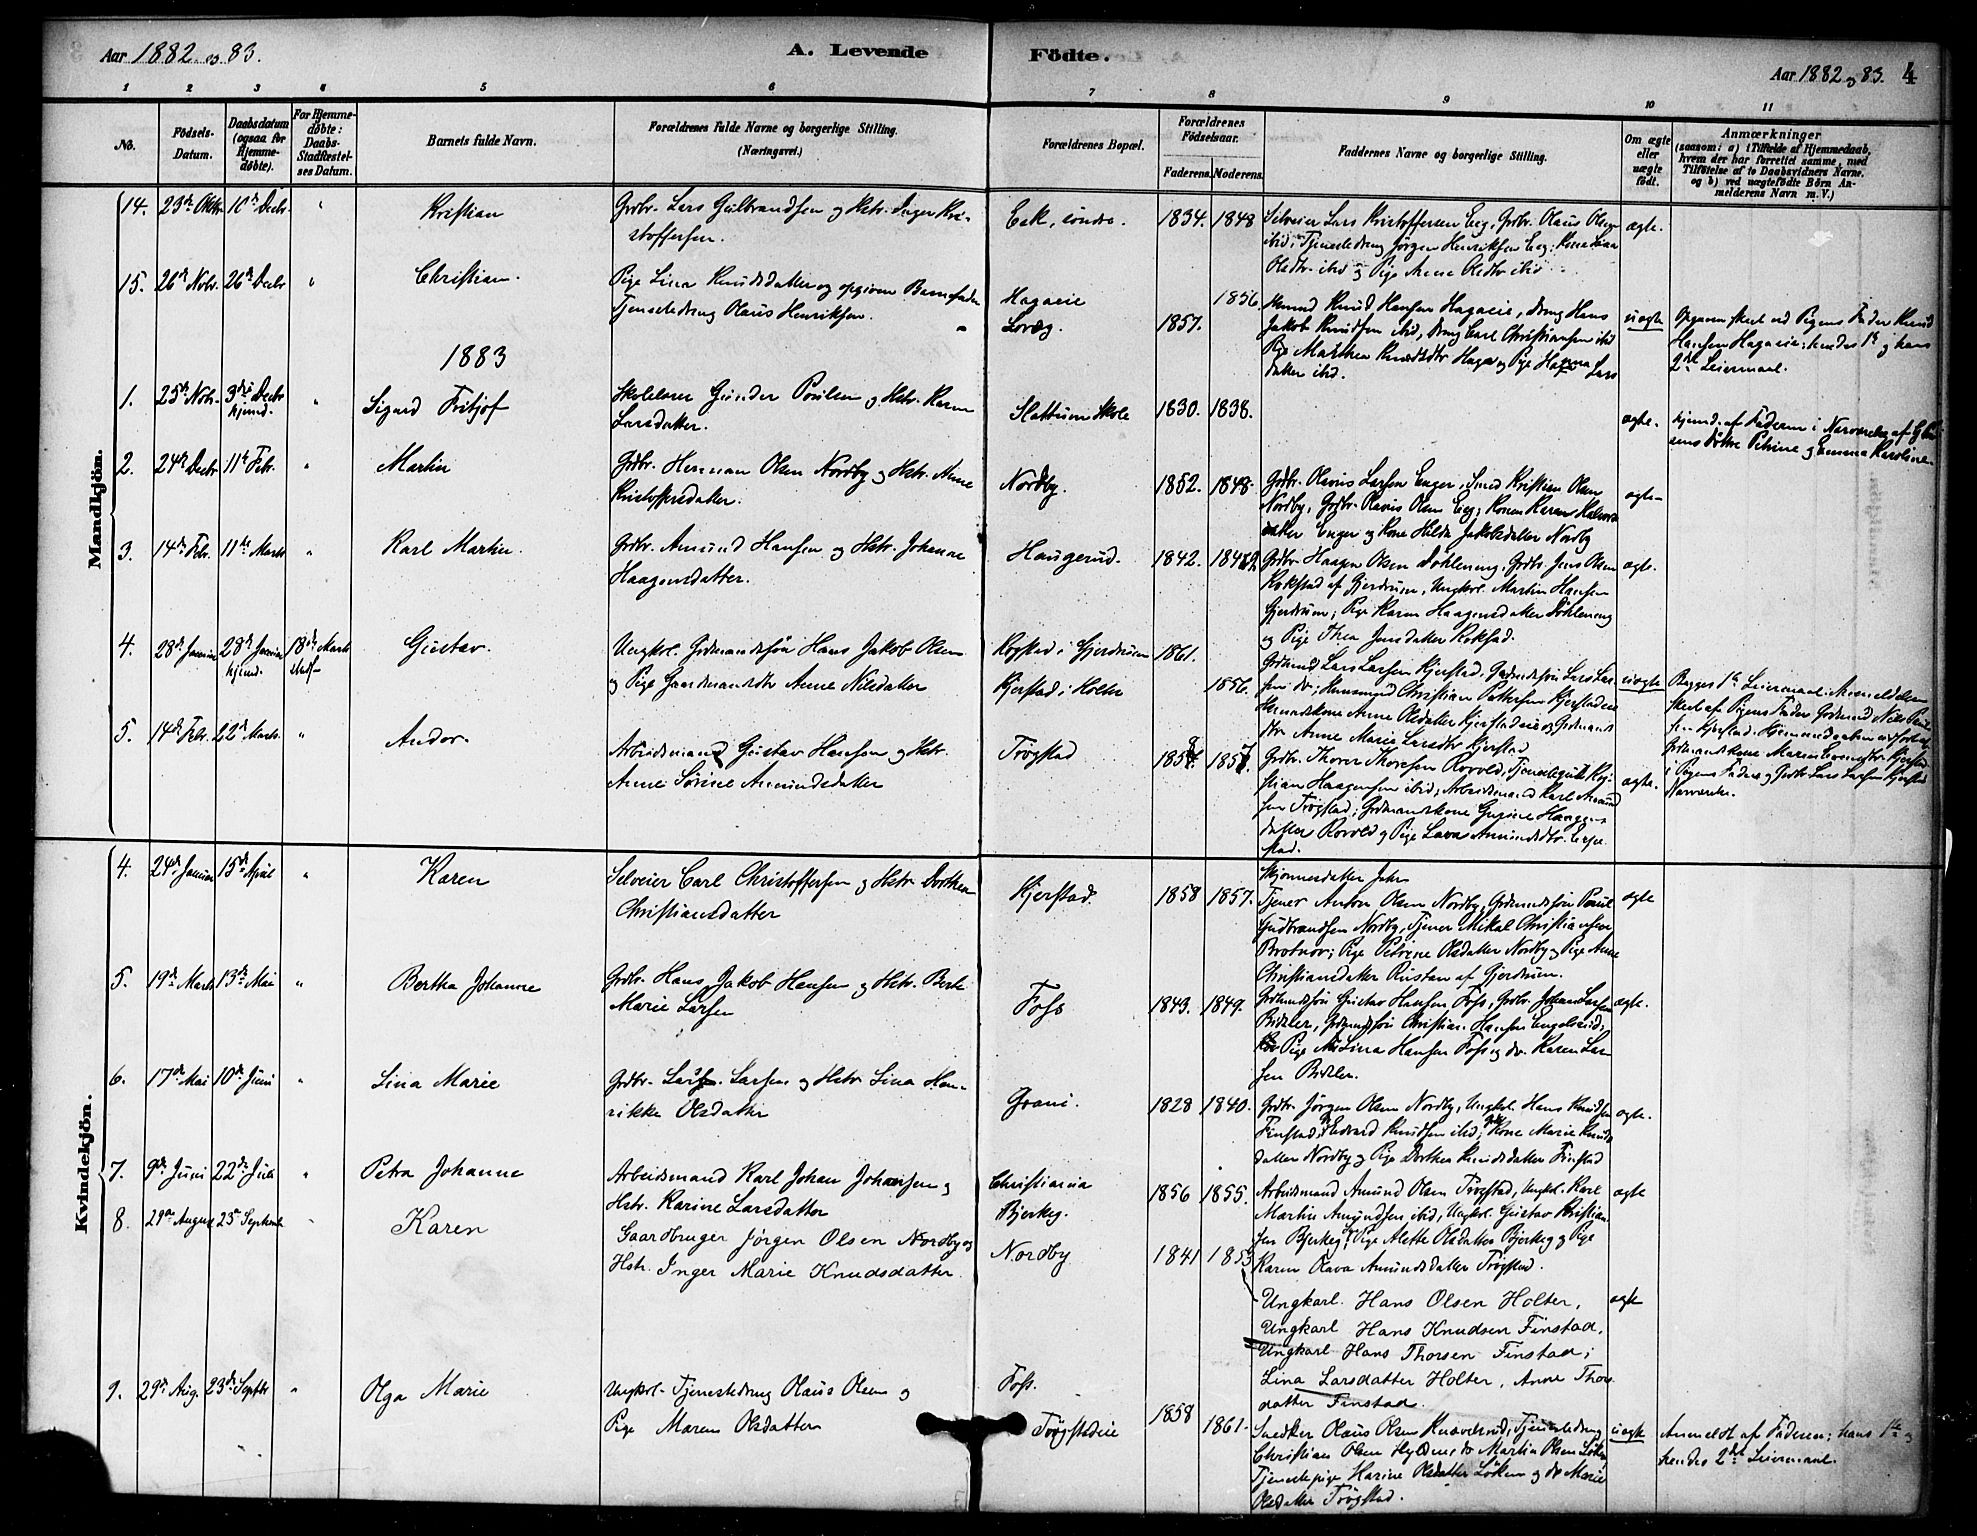 Aar 1882 og 83.
A. Levende Födte.
Aar 1882 og 83. 4
1 2 3 4 5 6 7 8 9 10 11
No.
Födsels-Datum.
Daabsdatum (ogsaa for Hjemme-döbte).
For Hjemme-döbte: Daabs-Stadfæstel-ses Datum.
Barnets fulde Navn.
Forældrenes fulde Navne og borgerlige Stilling. (Næringsvei.)
Forældrenes Bopæl.
Forældrenes Födselsaar.
Faderens. Moderens.
Faddernes Navne og borgerlige Stilling.
Om ægte eller uægte födt.
Anmærkninger
(saasom: a) i Tilfælde af Hjemmedaab,
hvem der har forrettet samme, med
Tilföielse af to Daabsvidners Navne,
og b) ved uægtefödte Börn An-
melderens Navn m. V.)
Mandkjön.
14. 23de Oktbr 10de Decbr " Kristian
Grdbr. Lars Gulbrandsen og Hstr. Inger Kri-
stoffersen.
Eek, söndre. 1834. 1848
Selveier Lars Kristoffersen Eeg, Grdbr. Olaus Olsen
ibid, Tjenestedreng Jörgen Henriksen Eeg; Kone Lina
Olsdtr. ibid og Pige Anne Olsdtr ibid
ægte.
15. 26de Novbr. 26de Decbr " Christian.
Pige Lina Knudsdatter og opgiven Barnefader
Tjenestedreng Olaus Henriksen.
Hagaeie 1856.
Lovæg. 1857.
Husmd Knud Hansen Hagaeie, Dreng Hans
Jakob Knudsen ibid, Dreng Carl Christiansen ibid
Pige Marthea Knudsdtr Haga og Pige Hanna Lars
datter ibid.
uægte
Opgaven skeet ved Pigens Fader Knud
Hansen Hagaeie; hendes 1ste og hans
2det Leiermaal.
1883
1. 25de Novbr. 3die Decbr hjemd. " Sigurd Fritjof
Skolelærer Gunder Poulsen og Hstr. Karen
Larsdatter.
Slattum Skole 1830. 1838.
ægte.
hjemd. af Faderen i Nærværelse af G. Poul-
sens Döttre Petrine og Emma Karoline.
2. 24de Decbr 11te Febr. " Martin
Grdbr. Herman Olsen Nordby og Hstr. Anne
Kristoffersdatter.
Nordby. 1852. 1848.
Grdbr. Olavus Larsen Enger, Smed Kristian Olsen
Nordby, Grdbr. Olavus Olsen Eeg; Konen Karen Halvors-
datter Enger og Kone Hilda Jakobsdatter Nordby
ægte.
3. 14de Febr. 11te Marts " Karl Martin.
Grdbr. Amund Hansen og Hstr. Johanne
Haagensdatter.
Haugerud. 1842.
Grdbr. Haagen Olsen Döhleneng, Grdbr. Jens Olsen
Rokstad af Gjerdrum, Ungkl. Martin Hansen
Gjerdrum; Pige Karen Haagensdatter Döhleneng
og Pige Thea Jensdatter Rokstad.
ægte.
4. 28de Januar 28de Januar hjemd. 18de Marts stadf. Gustav.
Ungkl. Grdmandssön Hans Jakob Olsen
og Pige Gaardmandsdtr Anne Nilsdatter
Rogstad i Gjerdrum 1861.
Kjerstad i Holter 1856.
Grdmand Lars Larsen Kjerstad, Grdmandssön Lars Lar-
sen do; Husmand Christian Pettersen Kjerstadeie
Husmandskone Anne Olsdatter Kjerstadeie og Grdmands
dtr Anne Marie Larsdtr Kjerstad
uægte
Begges 1ste Leiermaal. Anmeldelsen
skeet af Pigens Fader Grdmand Nils Poul-
sen Kjerstad. Hjemmedaaben udfört af
Grdmandskone Maren Evensdtr Kjerstad
i Pigens Faders og Grdbr Lars Larsen Kjerstad
Nærværelse.
5. 14de Febr. 22de Marts " Andor.
Arbeidsmand Gustav Hansen og Hstr.
Anne Sörine Amundsdatter
Trögstad
Grdbr. Thorer Thoresen Rovold, Tjenestegut Kri-
stian Haagensen ibid, Arbeidsmand Karl Amund
sen Trögstad; Grdmandskone Gunine Haagens
datter Rovold og Pige Lava Amundsdtr.
stad.
ægte.
Kvindekjön.
4. 24de Januar 15de April " Karen
Selveier Carl Christoffersen og Hstr Dorthea
Christiansdatter
Kjerstad. 1858 1857.
Tjener Anton Olsen Nordby, Grdmandssön Poul
Gudbrandsen Nordby, Tjener Mikal Christiansen
Brotnov; Pige Petrine Olsdatter Nordby og Pige Anne
Christiansdatter Rustan af Gjerdrum.
ægte
5. 19de Marts 13de Mai " Bertha Johanne
Grdbr. Hans Jakob Hansen og Hstr. Berte
Marie Larsen
Foss 1843. 1849.
Grdmandssön Gustav Hansen Foss, Grdbr. Johan Larsen
Bidzler, Grdmandssön Christian Hansen Engelsrud;
Pige Lina Hansen Foss og do. Karen Lar
sen Bidzler.
ægte.
6. 17de Mai 10de Juni " Lina Marie
Grdbr. Lars Larsen og Hstr. Lina Hen-
rikke Olsdatter
Grani. 1828 1840.
Grdbr Jörgen Olsen Nordby, Ungkl. Hans Knudsen
Finstad, Edvard Knudsen ibid; Kone Marie Knuds
datter Nordby og Pige Dorthea Knudsdatter Finstad
ægte.
7. 9de Juni 22de Juli " Petra Johanne
Arbeidsmand Karl Johan Johansen og
Hstr. Karine Larsdatter
Christiania
Bjerkeg. 1856 1855.
Arbeidsmand Amund Olsen Trögstad, Ungkl. Karl
Martin Amundsen ibid, Ungkl. Gustav Kristian
sen Bjerkeg; Pige Alette Olsdatter Bjerkeg og Pige
Karen Olava Amundsdatter Trögstad.
ægte
8. 29de August 23de Septemb " Karen
Gaardbruger Jörgen Olsen Nordby og
Hstr. Inger Marie Knudsdatter.
Nordby 1841 1853
Ungkarl. Hans Olsen Holter,
Ungkarl Hans Knudsen Finstad,
Ungkarl Hans Thorsen Finstad;
Lina Larsdatter Holter, Anne Thors
datter Finstad.
ægte
9. 29de Aug. 23de Septbr " Olga Marie
Ungkl. Tjenestedreng Olaus Olsen og
Pige Maren Olsdatter
Foss. 1858
Trögstadeie 1861.
Snedker Olaus Olsen Tjenestedreng
Christian Olsen do Martin Olsen Löken
Tjenestepige Karine Olsdatter Löken og do Marie
Olsdatter Trögstad.
uægte
Anmeldt af Faderen; hans 1ste og
hendes 2det Leiermaal.